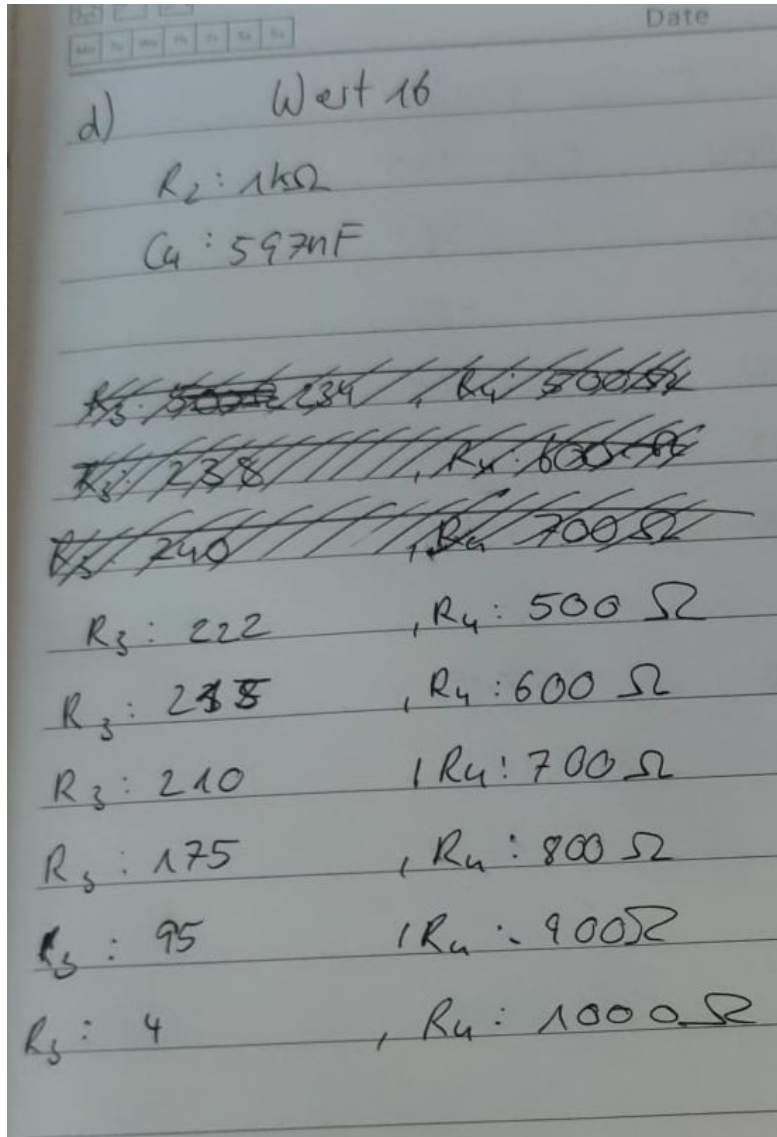 Date
Mo Tu We Th Fr Sa Su
d) Wert 16
R2: 1kΩ
C4: 597nF
R3: 234, R4: 500Ω
R3: 238, R4: 600Ω
R3: 240, R4: 700Ω
R3: 222, R4: 500 Ω
R3:, R4: 600 Ω
R3: 210, R4: 700 Ω
R3: 175, R4: 800 Ω
R3: 95, R4: 900Ω
R3: 4, R4: 1000Ω